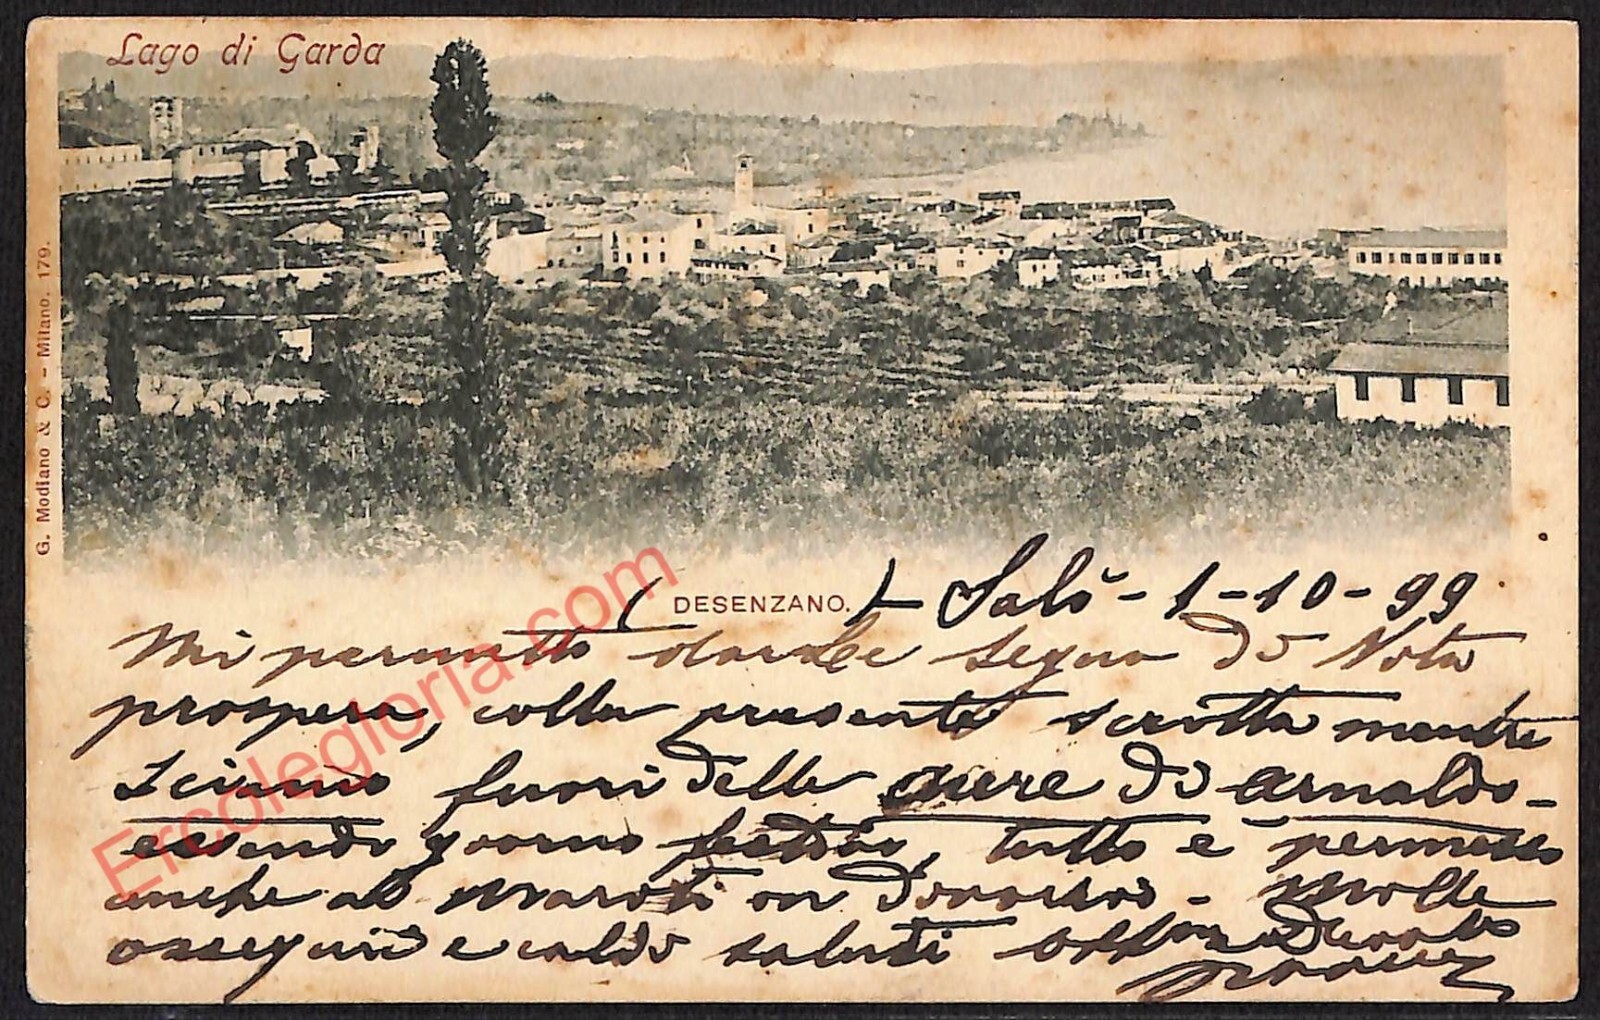 Lago di Garda
G. Modiano & C. - Milano. 179.
( DESENZANO. ) - Salò - 1-10-99
Mi permetto darle segno di Vita
prospera, colla presente scritta mentre
sciamo fuori delle di Arnaldo -
essendo giorno festivo, tutto è permesso
anche ai - Molte
ossequi e caldi saluti
Ercolegloria.com